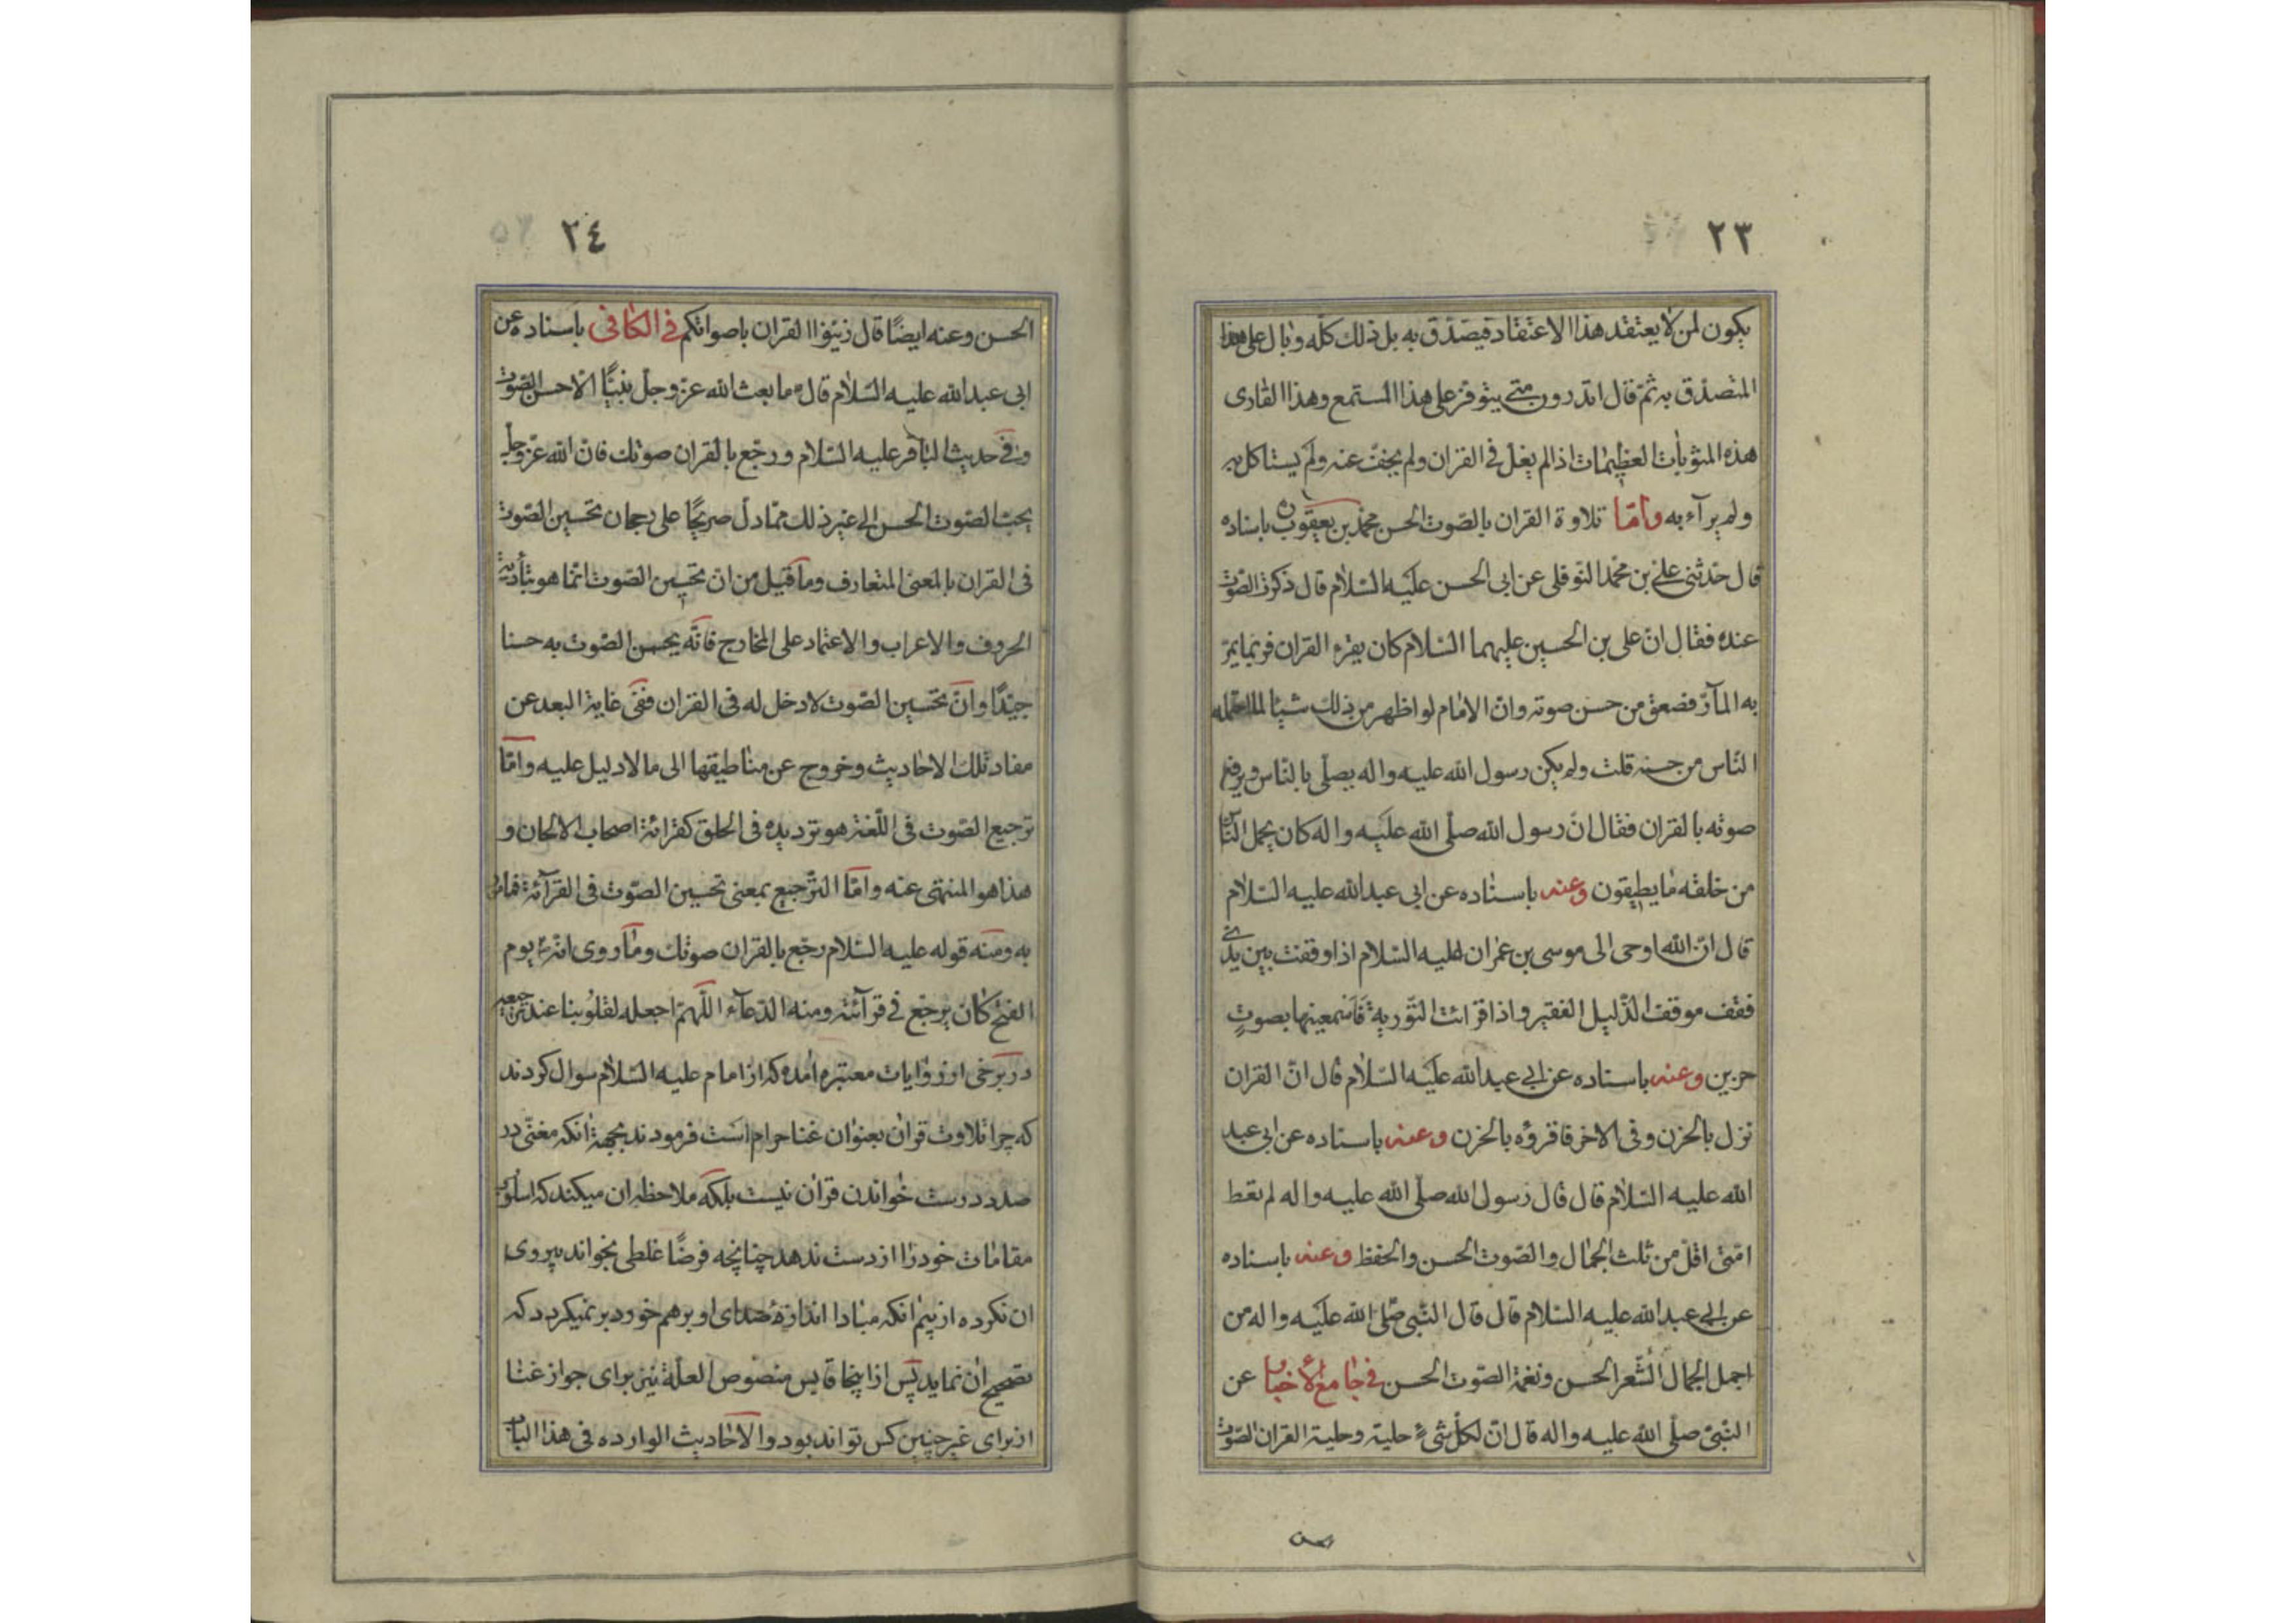 ٢٣
يكون لمن لا يعتقد هذا الاعتقاد فيصدق به بل ذلك كله وبال على هذا
المتصدق به ثم قال اتدرون متى يتوفر على هذا المستمع وهذا القارى
هذه المثوبات العظيمات اذا لم يغل فى القران ولم يجف عنه ولم يستاكل به
ولم يرآء به وامّا تلاوة القران بالصّوت الحسن محمّد بن يعقوب باسناده
قال حدثنى على بن محمّد النّوفلى عن ابى الحسن عليه السّلام قال ذكرت الصّوت
عنده فقال انّ على بن الحسين عليهما السّلام كان يقرء القران فربما يمرّ
به المآرّ فصعق من حسن صوته وانّ الامام لو اظهر من ذلك شيئا لما احتمله
النّاس من حسنه قلت ولم يكن رسول الله عليه واله يصلّى بالنّاس ويرفع
صوته بالقران فقال انّ رسول الله صلّى الله عليه واله كان يحمل النّاس
من خلفه ما يطيقون وعنه باسناده عن ابى عبد الله عليه السّلام
قال انّ الله اوحى الى موسى بن عمران عليه السّلام اذا وقفت بين يدىّ
فقف موقف الذّليل الفقير واذا قرائت التّورية فاسمعينها بصوتٍ
حزين وعنه باسناده عن ابى عبد الله عليه السّلام قال انّ القران
نزل بالحزن وفى الاخر فاقروه بالحزن وعنه باسناده عن ابى عبد
الله عليه السّلام قال قال رسول الله صلّى الله عليه واله لم تعط
امّتى اقلّ من ثلث الجمال والصّوت الحسن والحفظ وعنه باسناده
عن ابى عبد الله عليه السّلام قال قال النّبى صلّى الله عليه واله من
اجمل الجمال الشّعر الحسن ونغمة الصّوت الحسن فى جامع الأخبار عن
النّبىّ صلّى الله عليه واله قال انّ لكلّ شىءٍ حلية وحلية القران الصّوت
٢٤
الحسن وعنه ايضًا قال زيّنوا القران باصواتكم فى الكافى باسناده عن
ابى عبد الله عليه السّلام قال ما بعث الله عزّ وجلّ نبيًّا الّا حسن الصّوت
وفى حديث الباقر عليه السّلام ورجّع بالقران صوتك فانّ الله عزّ وجلّ
يحبّ الصّوت الحسن الى غير ذلك ممّا دلّ صريحًا على رجحان تحسين الصّوت
فى القران بالمعنى المتعارف وما قيل من انّ تحسين الصّوت انّما هو بتأدية
الحروف والاعراب والاعتماد على المخارج فانّه يحسن الصّوت به حسنا
جيّدًا وانّ تحسين الصّوت لا دخل له فى القران ففى غاية البعد عن
مفاد تلك الاحاديث وخروج عن مناطيقها الى ما لا دليل عليه وامّا
ترجيع الصّوت فى اللّغة هو ترديده فى الحلق كقرائة اصحاب الالحان و
هذا هو المنهى عنه وامّا التّرجيع بمعنى تحسين الصّوت فى القرآئة فمامور
به ومنه قوله عليه السّلام رجّع بالقران صوتك وما روى انّه يوم
الفتح كان يرجّع فى قرآئته ومنه الدّعآء اللّهمّ اجعله لقلوبنا عند ترجيعه
در برخى از روايات معتبره آمده كه از امام عليه السّلام سوال كردند
كه چرا تلاوت قران بعنوان غنا حرام است فرمودند بجهة انكه مغنّى در
صدد درست خواندن قران نيست بلكه ملاحظه ان ميكند كه اسلوب
مقامات خود را از دست ندهد چنانچه فرضًا غلطى بخواند پيروى
ان نكرده از بيم انكه مبادا اندازهٔ صداى او بر هم خورد بر نميگردد كه
تصحيح ان نمايد پس از اينجا قايس منصوص العلّة نيز براى جواز غنا
از براى غير چنين كس تواند بود والاحاديث الوارده فى هذا الباب